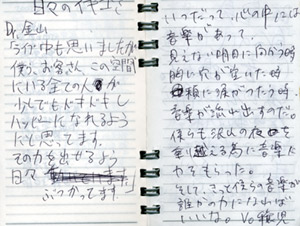 日々の
Dr.金山
ライブ中も思いましたが
僕う、お客さん、この空間
にいる全ての人が
少しでもドキドキし
ハッピーになれるよう
にと思ってます。
その力を出せるよう
日々
ぶつかってます!
いつだって、心の中には
音楽があって、
見えない明日に向かう時
胸に穴が空いた時
頬に涙がつたう時
音楽が流れ出すのだ。
僕らも沢山の夜を
乗り越える為に音楽に
力をもらった。
そして、きっと僕らの音楽が
誰かの力になれば
いいな。 Vo